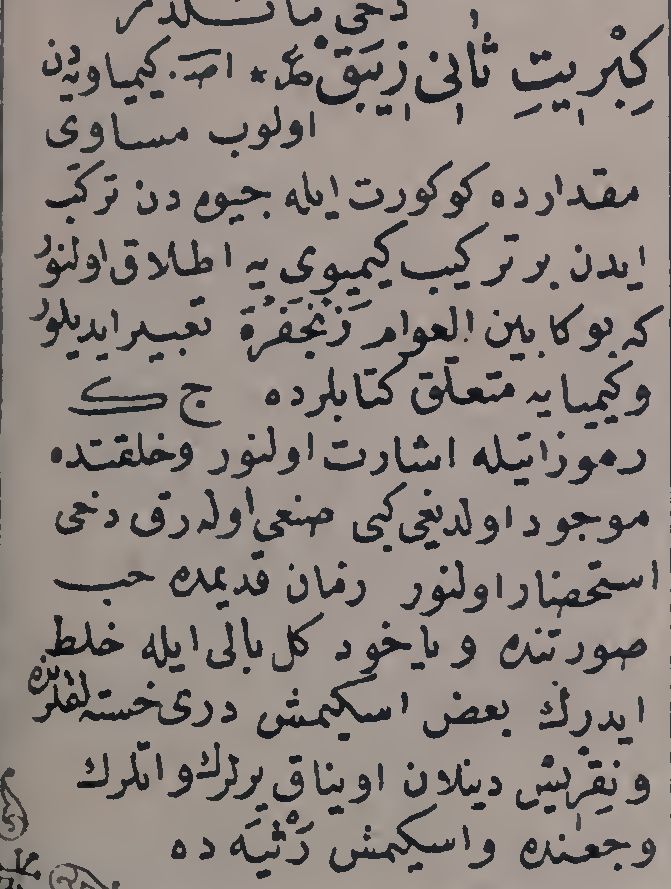 دخی
كِبْرِيتِ ثانى زِيبَقْ * اصـ. كيمياويه دن
اولوب مساوى
مقدارده كوكورت ايله جيوه دن تركّب
ايدن بر تركيب كيميوى يه اطلاق اولنور
كه بوكا بين العوام زَنْجَفْرَه تعبير ايديلور
وكيميايه متعلّق كتابلرده ج ک
رموزاتيله اشارت اولنور وخلقتده
موجود اولديغى كبى صنعى اوله رق دخى
استحضار اولنور زمان قديمده حب
صورتنده و ياخود كل بالى ايله خلط
ايدرك بعض اسكيمش درى خسته لقلرنده
ونِقْرِيسْ دينلان اويناق يرلرك و اتلرك
وجعنده واسكيمش رَثْيَه ده